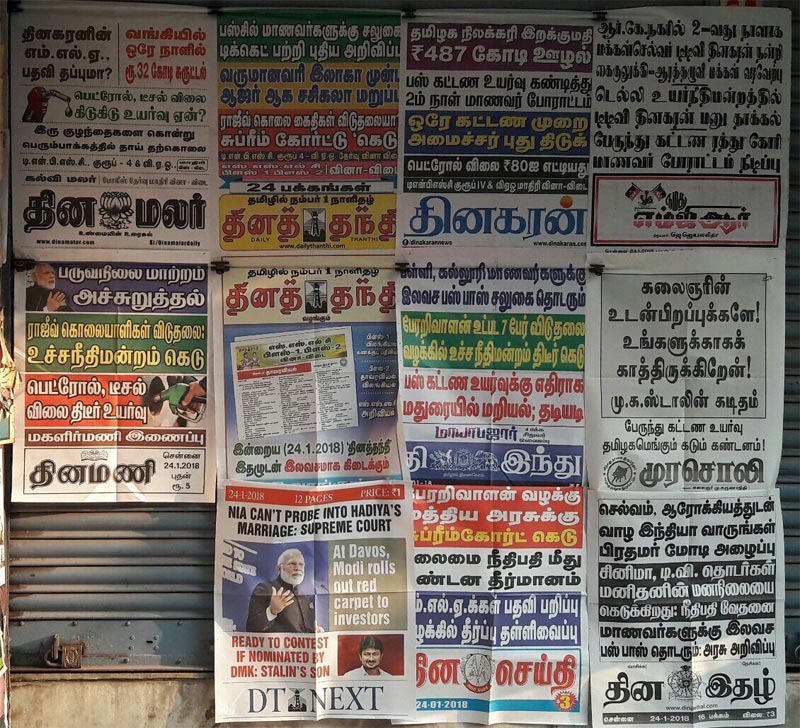 தினகரனின்
எம்.எல்.ஏ.,
பதவி தப்புமா?
வங்கியில்
ஒரே நாளில்
ரூ.32 கோடி சுருட்டல்
பெட்ரோல், டீசல் விலை
கிடுகிடு உயர்வு ஏன்?
இரு குழந்தைகளை கொன்று
பெரும்பாக்கத்தில் தாய் தற்கொலை
டி.என்.பி.எஸ்.சி., குரூப் - 4 & வி.ஏ.ஓ.,
கல்வி மலர்
போலீஸ் தேர்வு மாதிரி வினா - விடை
தின மலர்
உண்மையின் உரைகல்
www.dinamalar.com
/dinamalardaily
பஸ்சில் மாணவர்களுக்கு சலுகை
டிக்கெட் பற்றி புதிய அறிவிப்பு
வருமானவரி இலாகா முன்பு
ஆஜர் ஆக சசிகலா மறுப்பு
ராஜீவ் கொலை கைதிகள் விடுதலையா
சுப்ரீம் கோர்ட்டு 'கெடு
24 பக்கங்கள்
தமிழில் நம்பர் 1 நாளிதழ்
தினத் தந்தி
DAILY THANTHI
www.dailythanthi.com
தமிழக நிலக்கரி இறக்குமதி
₹487 கோடி ஊழல்
பஸ் கட்டண உயர்வு கண்டித்து
2ம் நாள் மாணவர் போராட்டம்
ஒரே கட்டண முறை
அமைச்சர் புது திடுக்
பெட்ரோல் விலை ₹80ஐ எட்டியது
டிஎன்பிஎஸ்சி குரூப் IV & விஏஓ மாதிரி வினா-விடை
தினகரன்
/dinakarannews
www.dinakaran.com
ஆர்.கே.நகரில் 2-வது நாளாக
மக்கள்செல்வர் டிடிவி தினகரன் நன்றி
கைகுலுக்கி-ஆரத்தழுவி மக்கள் வரவேற்பு
டெல்லி உயர்நீதிமன்றத்தில்
டிடிவி தினகரன் மனு தாக்கல்
பேருந்து கட்டண ரத்து கோரி
மாணவர் போராட்டம் நீடிப்பு
நமது
எம்ஜிஆர்
ஜெ ஜெயலலிதா
பருவநிலை மாற்றம்
அச்சுறுத்தல்
ராஜீவ் கொலையாளிகள் விடுதலை:
உச்சநீதிமன்றம் கெடு
பெட்ரோல், டீசல்
விலை திடீர் உயர்வு
மகளிர்மணி இணைப்பு
தினமணி
சென்னை
24.1.2018
புதன்
ரூ. 5
தமிழில் நம்பர் 1 நாளிதழ்
தினத் தந்தி
வழங்கும்
எஸ்.எஸ்.எல்.சி
பிளஸ்-1 பிளஸ்-2
வினா-விடை
இன்றைய (24.1.2018) 'தினத்தந்தி'
இதழுடன் இலவசமாக கிடைக்கும்
பள்ளி, கல்லூரி மாணவர்களுக்கு
இலவச பஸ் பாஸ் சலுகை தொடரும்
பேறறிவாளன் உட்பட 7 பேர் விடுதலை
வழக்கில் உச்ச நீதிமன்றம் திடீர் கெடு
பஸ் கட்டண உயர்வுக்கு எதிராக
மதுரையில் மறியல்; தடியடி
மாயாபஜார்
இந்து
கலைஞரின்
உடன்பிறப்புக்களே!
உங்களுக்காகக்
காத்திருக்கிறேன்!
மு.க.ஸ்டாலின் கடிதம்
பேருந்து கட்டண உயர்வு
தமிழகமெங்கும் கடும் கண்டனம்!
முரசொலி
24-1-2018 12 PAGES PRICE: ₹1
NIA CAN'T PROBE INTO HADIYA'S
MARRIAGE: SUPREME COURT
At Davos,
Modi rolls
out red
carpet to
investors
READY TO CONTEST
IF NOMINATED BY
DMK: STALIN'S SON
DT NEXT
பேரறிவாளன் வழக்கு
மத்திய அரசுக்கு
சுப்ரீம்கோர்ட் கெடு
தலைமை நீதிபதி மீது
கண்டன தீர்மானம்
எம்.எல்.ஏ.க்கள் பதவி பறிப்பு
வழக்கில் தீர்ப்பு தள்ளிவைப்பு
தின செய்தி
24-01-2018
3
செல்வம், ஆரோக்கியத்துடன்
வாழ இந்தியா வாருங்கள்
பிரதமர் மோடி அழைப்பு
சினிமா, டி.வி. தொடர்கள்
மனிதனின் மனநிலையை
கெடுக்கிறது: நீதிபதி வேதனை
மாணவர்களுக்கு இலவச
பஸ் பாஸ் தொடரும்: அரசு அறிவிப்பு
தின இதழ்
சென்னை 24-1-2018 16 பக்கம் விலை ₹3